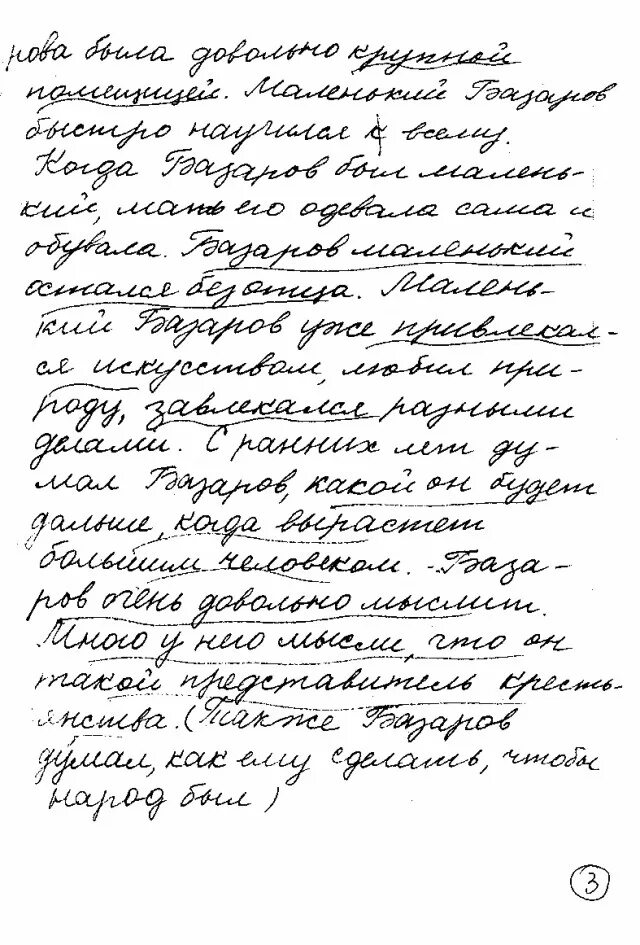 рова была довольно крупной
помещицей. Маленький Базаров
быстро научился к всему.
Когда Базаров был малень-
кий, мать его одевала сама и
обувала. Базаров маленький
остался без отца. Малень-
кий Базаров уже привлекал-
ся искусством, любил при-
роду, завлекался разными
делами. С ранних лет ду-
мал Базаров, какой он будет
дальше, когда вырастет
большим человеком. База-
ров очень довольно мыслит.
Много у него мысли, что он
такой представитель кресть-
янства. (Также Базаров
думал, как ему сделать, чтобы
народ был)
3